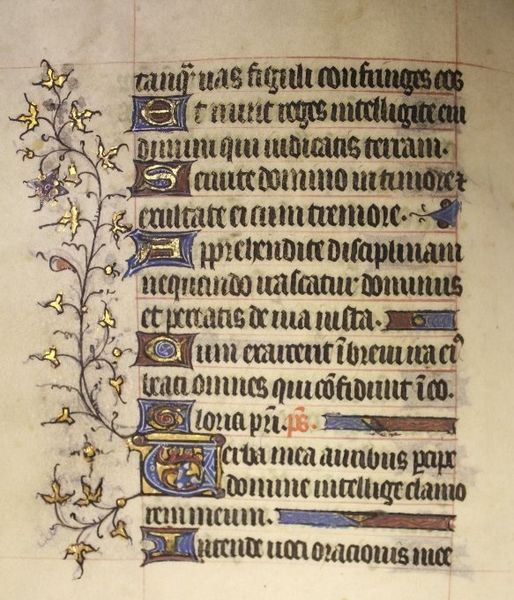 tanq̃ uas figuli confringes eos
Et nunc reges intelligite eru
dimini qui iudicatis terram.
Seruite domino in timore ⁊
exultate ei cum tremore.
Apprehendite disciplinam
nequando irascatur dominus
et pereatis de uia iusta.
Cum exarcerit ĩ breui ira eiꝰ
beati omnes qui cõfidunt ĩ eo.
Gloria pr̃i. p̃s.
Uerba mea auribus ꝑcipe
domine intellige clamo
rem meum.
Intende uoci oracionis mee